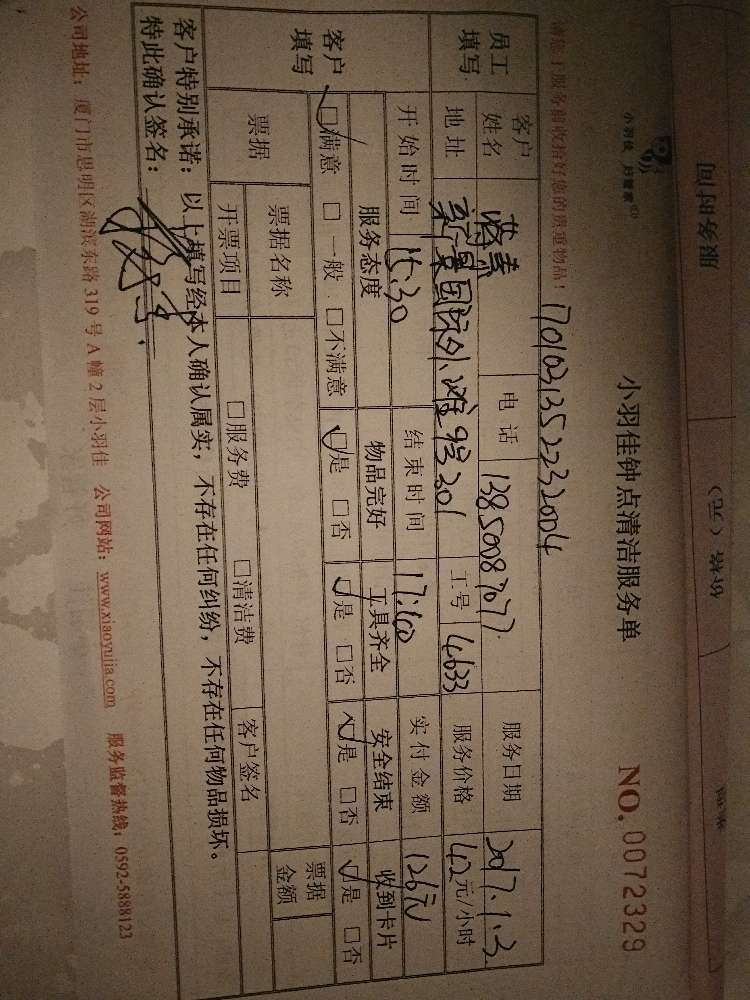 服务时间
价格（元）
小羽佳 好管家
小羽佳钟点清洁服务单
NO. 0072329
17010313522232004
员工填写
客户姓名
电话 13850087077
服务日期 2017.1.3
地址
国际外滩
301
工号 4633
服务价格 42元/小时
开始时间 15:30
结束时间
实付金额 126元
客户填写
服务态度 物品完好 工具齐全 安全结束 收到卡片
□满意 □一般 □不满意 □是 □否 □是 □否 □是 □否 □是 □否
票据
票据名称
票据金额
开票项目 □服务费 □清洁费 客户签名
客户特别承诺：以上填写经本人确认属实，不存在任何纠纷，不存在任何物品损坏。
特此确认签名：
公司地址：厦门市思明区湖滨东路 319 号 A 幢 2 层小羽佳 公司网站：www.xiaoyujia.com 服务监督热线：0592-5888123